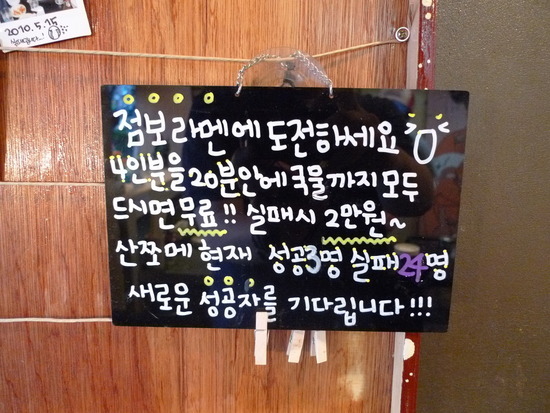 2010.5.15
점보라멘에 도전하세요
4인분을 20분안에 국물까지 모두
드시면 무료!! 실패시 2만원~
산쪼메 현재 성공3명 실패24명
새로운 성공자를 기다립니다!!!